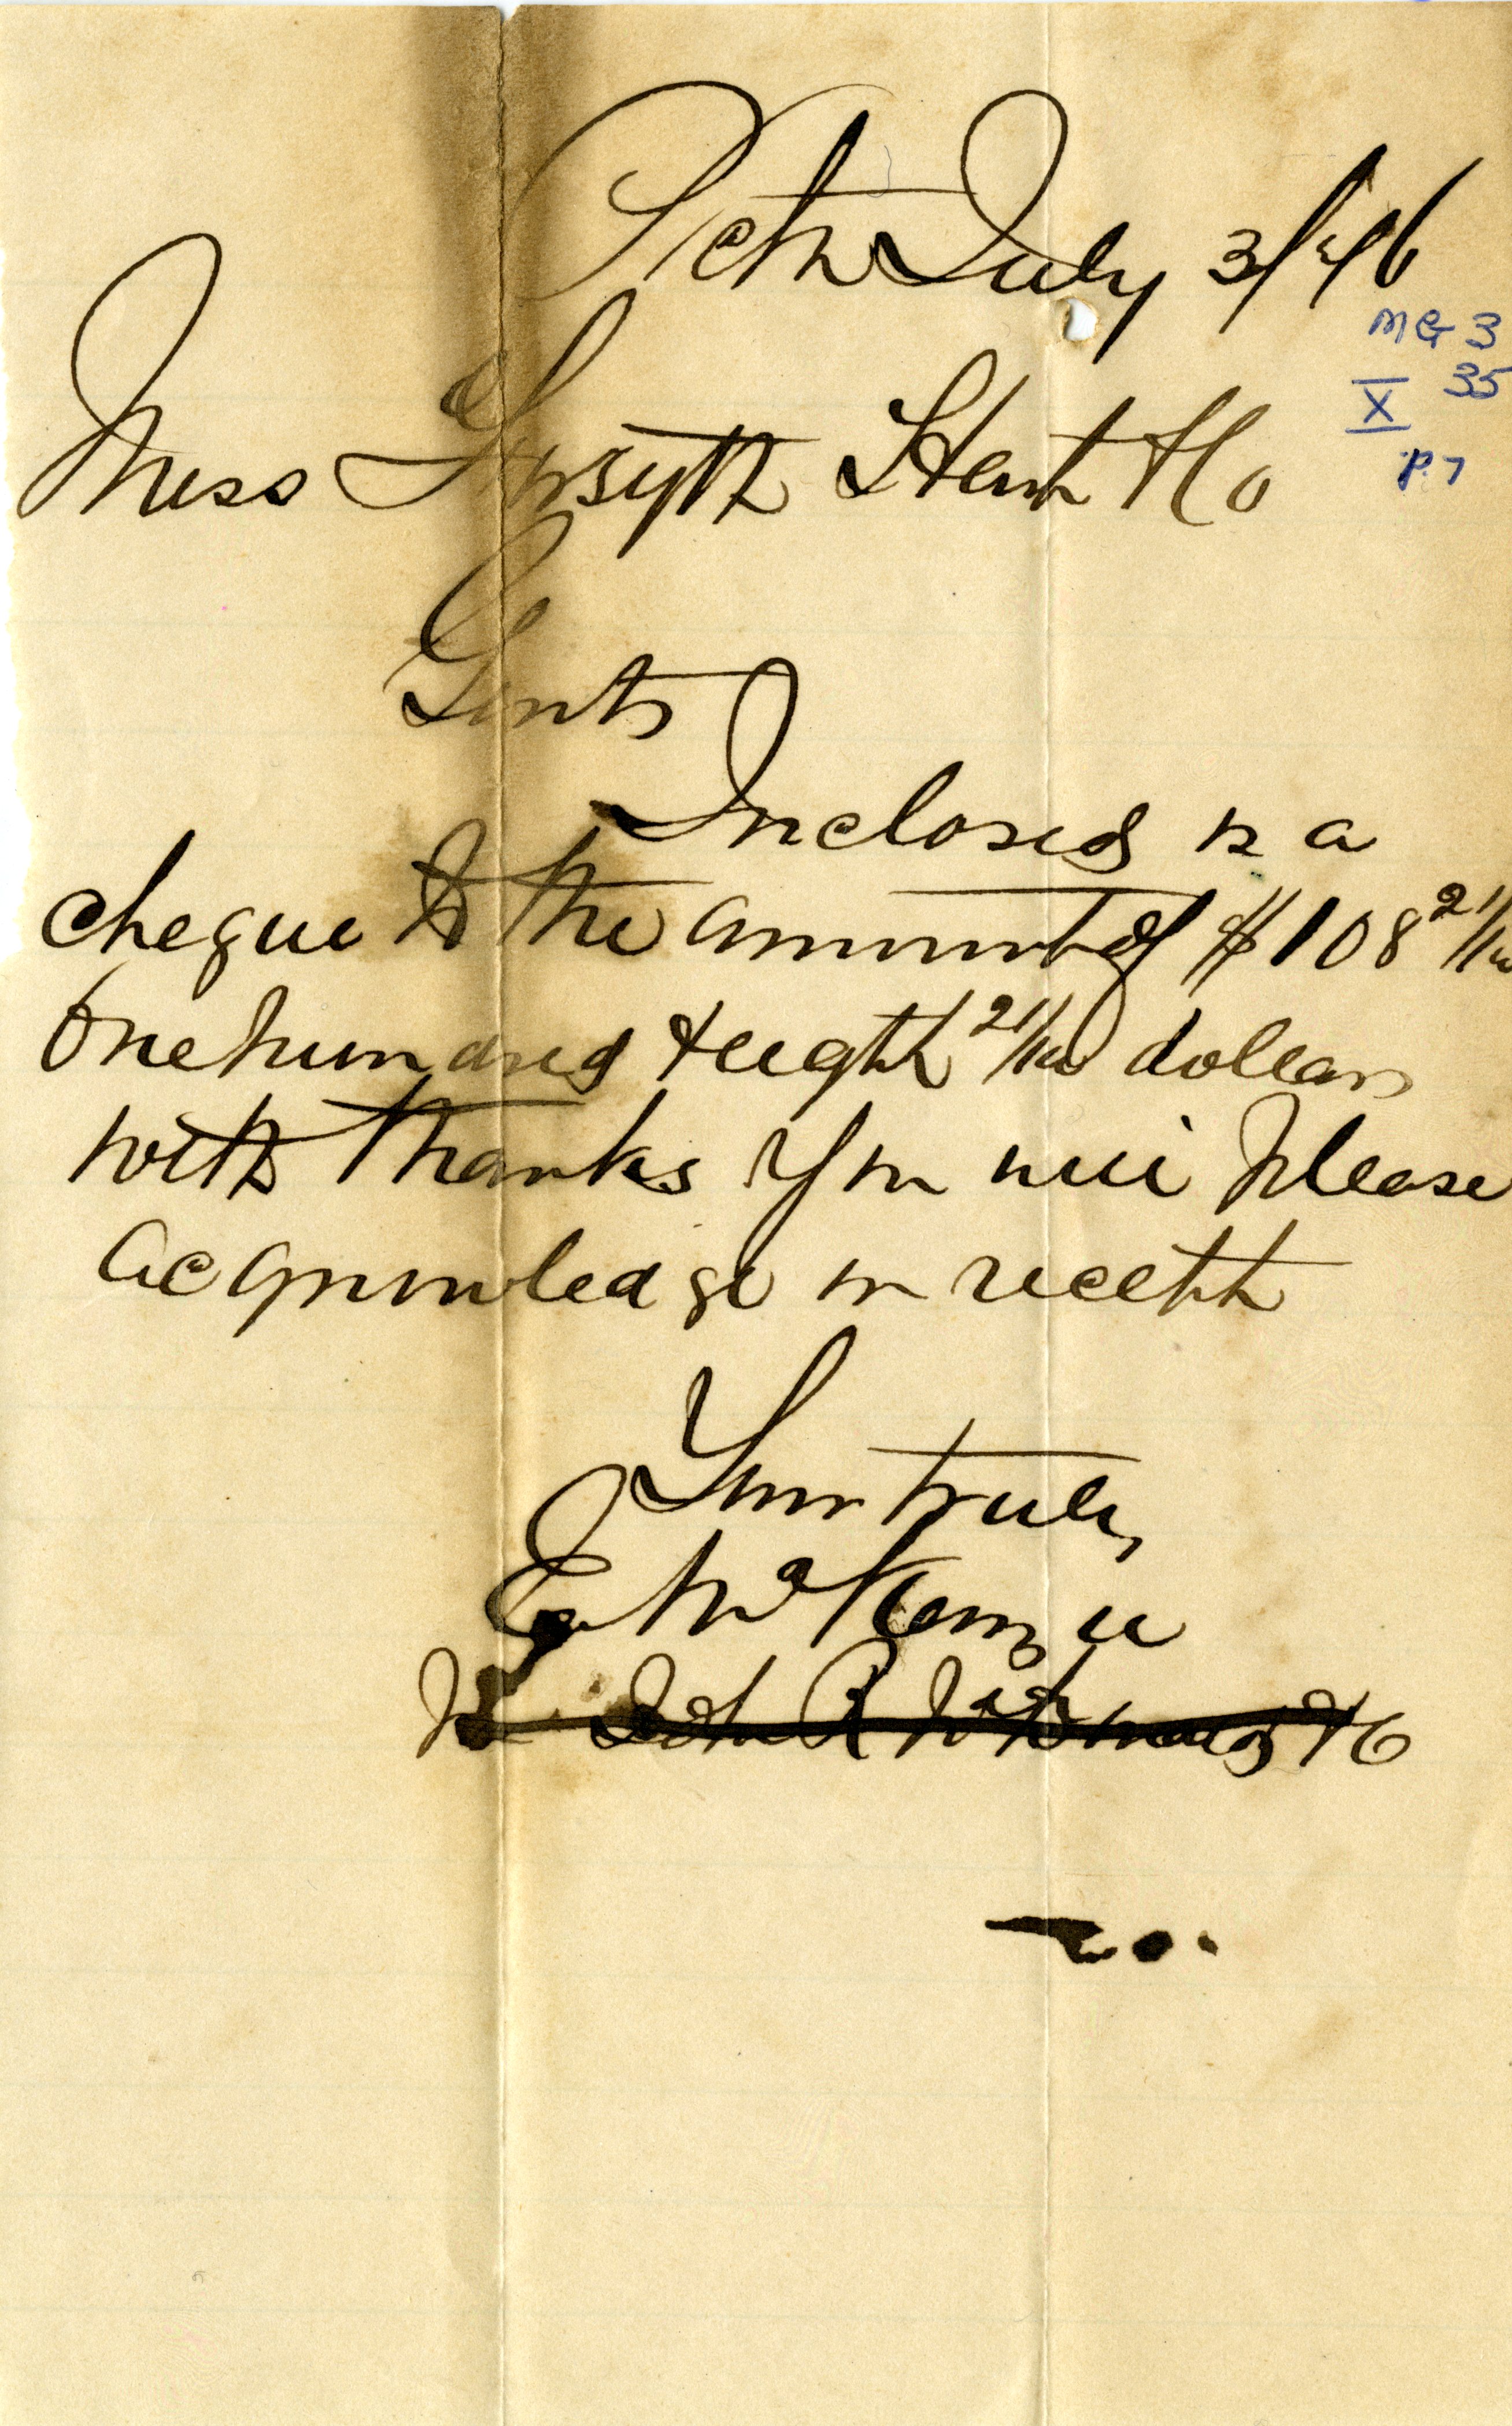 Pictou July 3/
MG 3
35
X
P.7
Mess Forsyth & Co
Gents
Inclosed is a
cheque to the amount of $108 21/100
One hundred & eight 21/100 dollars
with thanks you will please
acqnowledge on
Your truly
E McKenzie